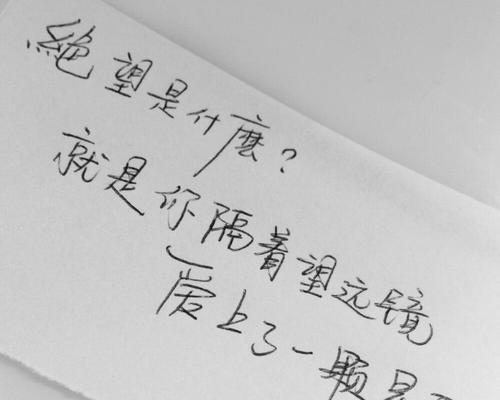 絶望是什麼?
就是你隔着望远镜
爱上了一颗